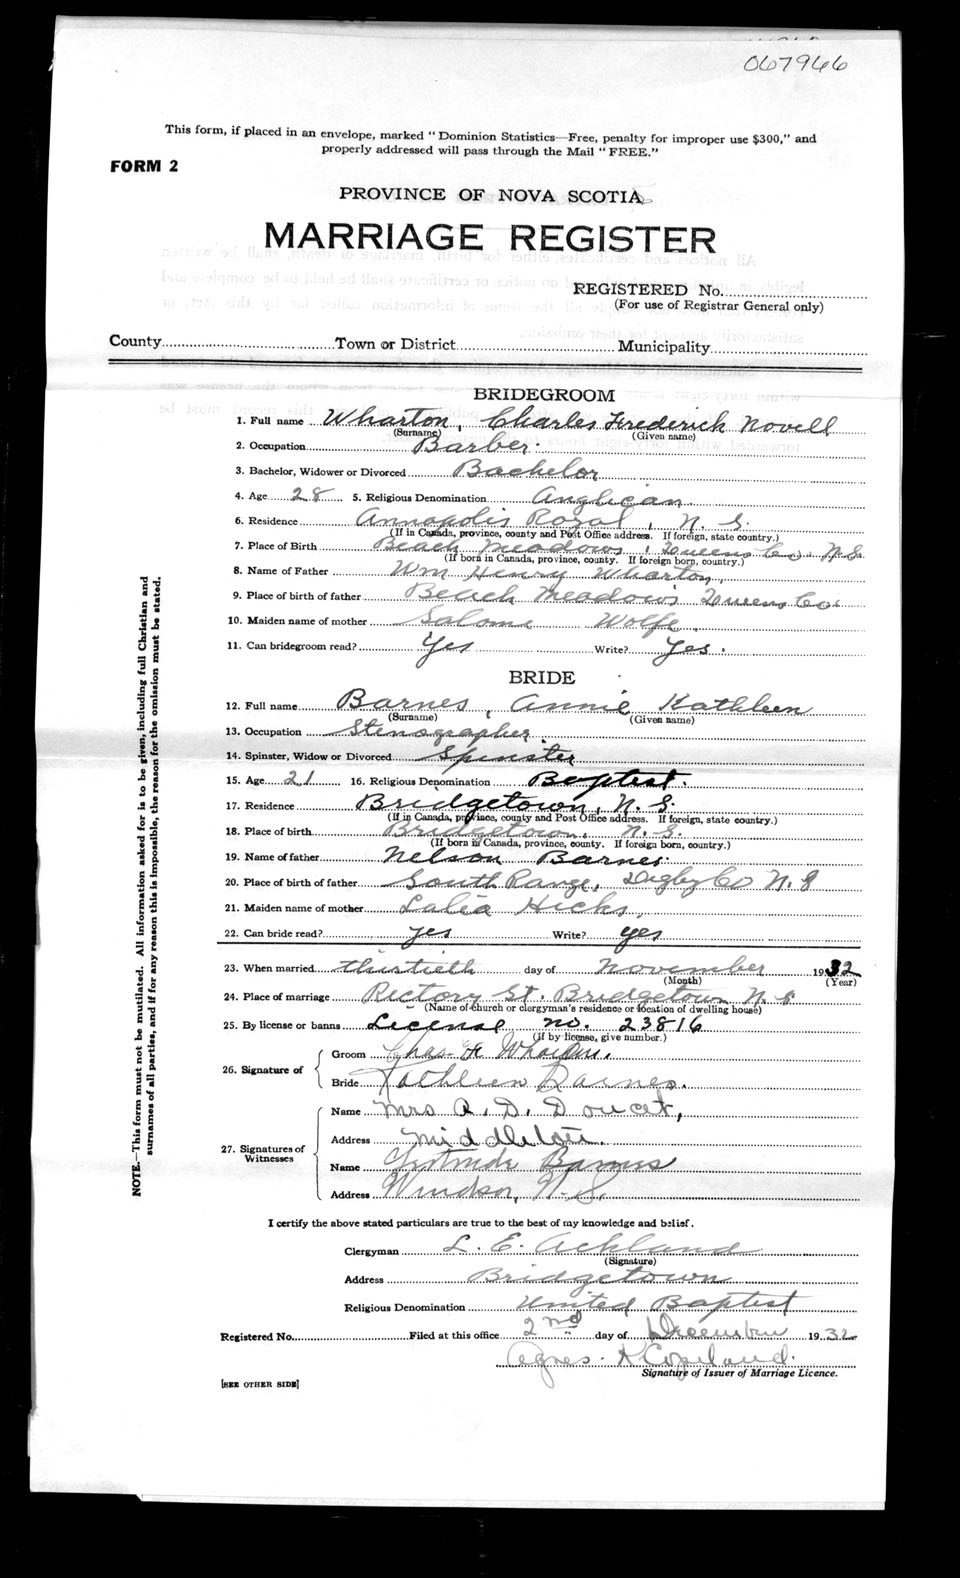 067946
This form, if placed in an envelope, marked "Dominion Statistics—Free, penalty for improper use $300," and
properly addressed will pass through the Mail "FREE."
FORM 2
PROVINCE OF NOVA SCOTIA
MARRIAGE REGISTER
REGISTERED No.
(For use of Registrar General only)
County Town or District Municipality
BRIDEGROOM
1. Full name Wharton, Charles Frederick Novell
(Surname) (Given name)
2. Occupation Barber.
3. Bachelor, Widower or Divorced Bachelor
4. Age 28 5. Religious Denomination Anglican
6. Residence Annapolis Royal, N. S.
(If in Canada, province, county and Post Office address. If foreign, state country.)
7. Place of Birth Beach Meadows, Queens Co. N.S.
(If born in Canada, province, county. If foreign born, country.)
8. Name of Father Wm Henry Wharton,
9. Place of birth of father Beach Meadows Queens Co.
10. Maiden name of mother Salome Wolfe.
11. Can bridegroom read? Yes Write? Yes.
BRIDE
12. Full name Barnes, Annie Kathleen
(Surname) (Given name)
13. Occupation Stenographer.
14. Spinster, Widow or Divorced Spinster
15. Age 21 16. Religious Denomination Baptist.
17. Residence Bridgetown, N. S.
(If in Canada, province, county and Post Office address. If foreign, state country.)
18. Place of birth Bridgetown, N. S.
(If born in Canada, province, county. If foreign born, country.)
19. Name of father Nelson Barnes.
20. Place of birth of father South Range, Digby Co N. S
21. Maiden name of mother Lalia Hicks,
22. Can bride read? yes Write? yes
23. When married thirtieth day of November 1932
(Month) (Year)
24. Place of marriage Rectory St. Bridgetown N. S
(Name of church or clergyman's residence or location of dwelling house)
25. By license or banns License no. 23816
(If by license, give number.)
26. Signature of
Groom Chas F Wharton.
Bride Kathleen Barnes.
27. Signatures of Witnesses
Name Mrs A. D. Doucet,
Address Middleton.
Name Gertrude Barnes
Address Windsor, N. S.
I certify the above stated particulars are true to the best of my knowledge and belief.
Clergyman L. E. Ackland
(Signature)
Address Bridgetown
Religious Denomination United Baptist
Registered No. Filed at this office 2nd day of December 1932
Agnes K Copeland.
Signature of Issuer of Marriage Licence.
[SEE OTHER SIDE]
NOTE.—This form must not be mutilated. All information asked for is to be given, including full Christian and
surnames of all parties, and if for any reason this is impossible, the reason for the omission must be stated.